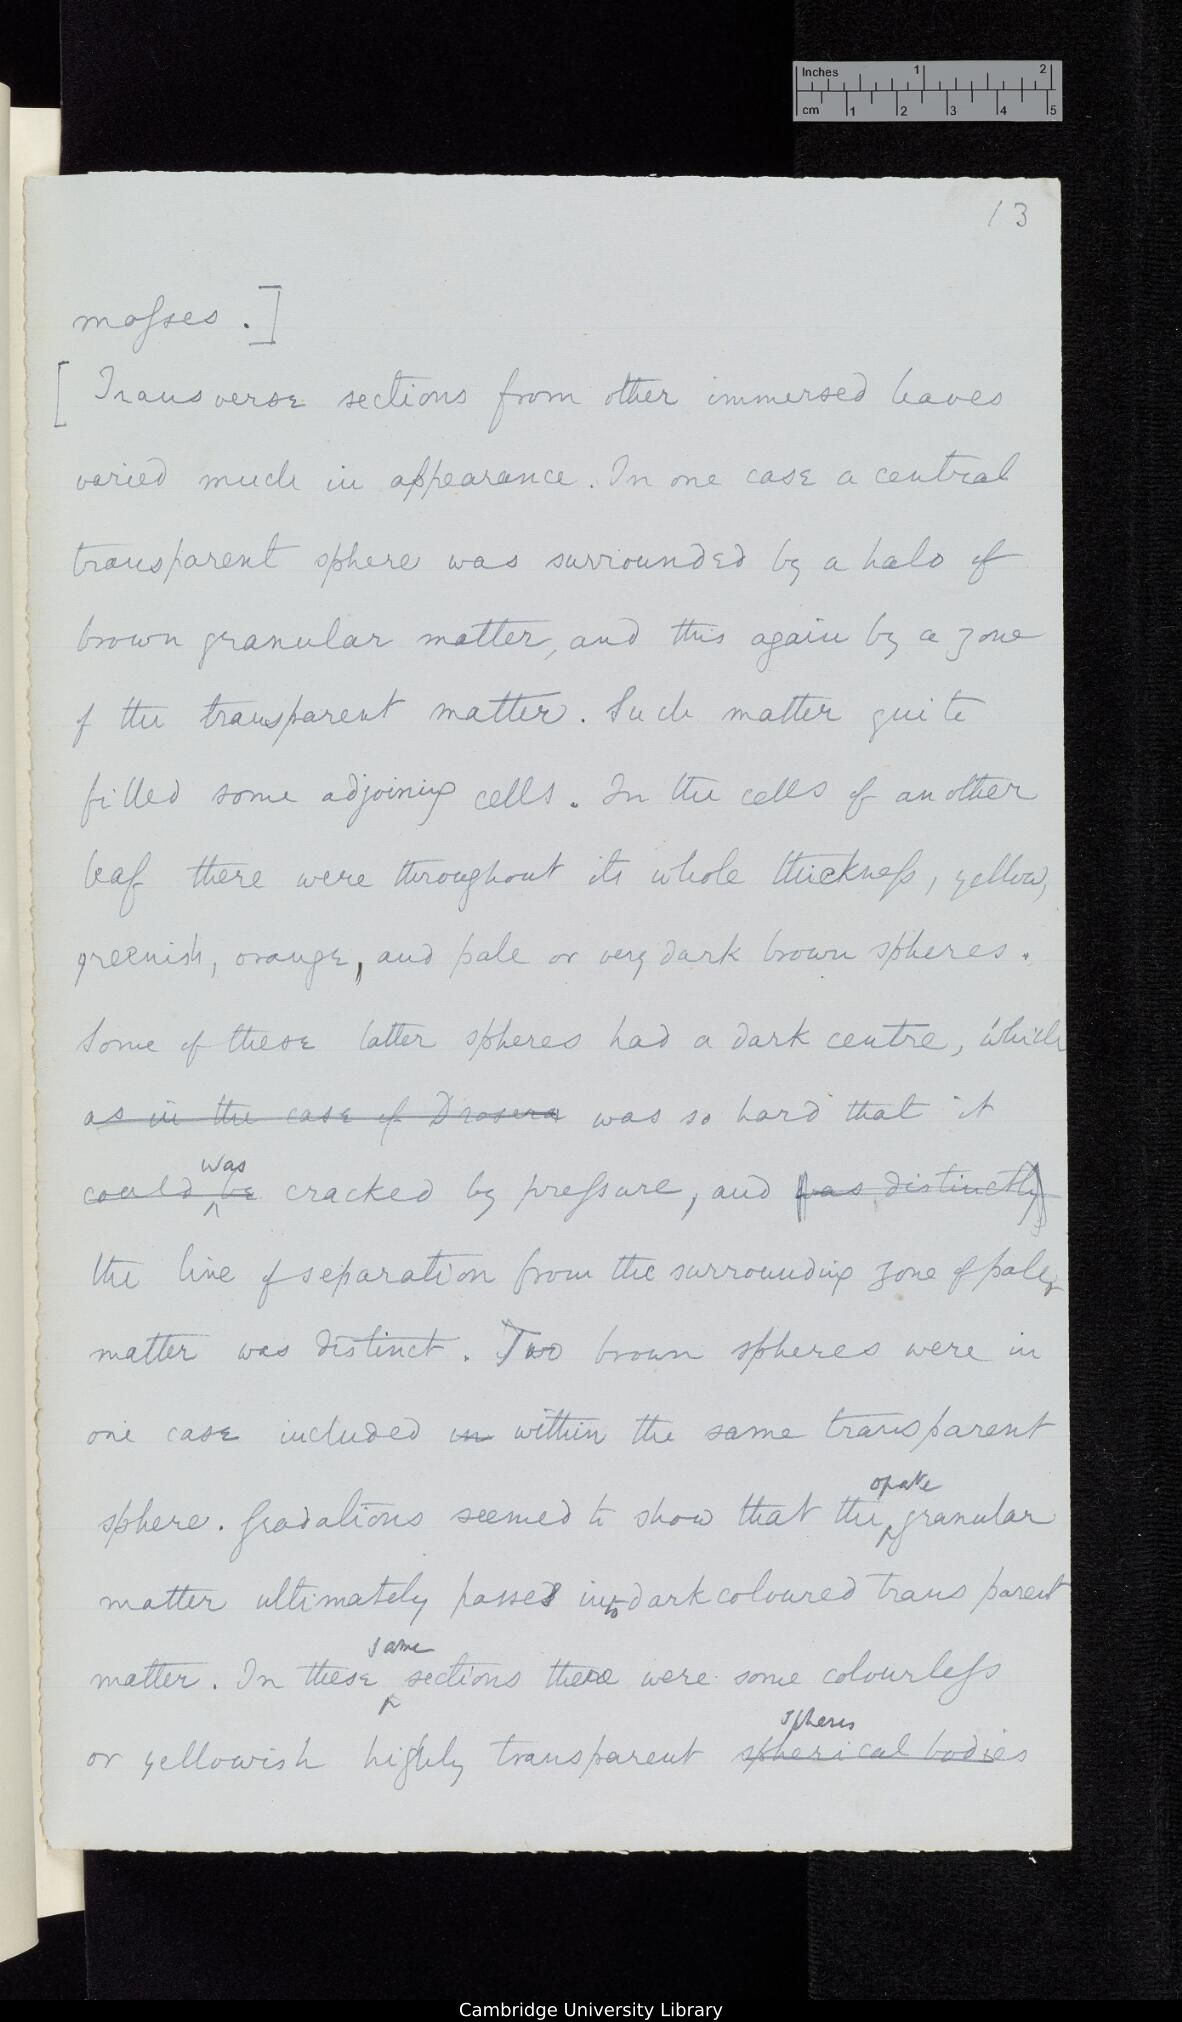 Inches 1 2
cm 1 2 3 4 5
13
masses.]
[Transverse sections from other immersed leaves
varied much in appearance. In one case a central
transparent sphere was surrounded by a halo of
brown granular matter, and this again by a zone
of the transparent matter. Such matter quite
filled some adjoining cells. In the cells of another
leaf there were throughout its whole thickness, yellow,
greenish, orange, and pale or very dark brown spheres.
Some of these latter spheres had a dark centre, which
as in the case of Drosera was so hard that it
was
could be cracked by pressure, and was distinctly
the line of separation from the surrounding zone of paler
matter was distinct. Two brown spheres were in
one case included in within the same transparent
opake
sphere. Gradations seemed to show that the granular
matter ultimately passes into dark coloured transparent
same
matter. In these sections there were some colourless
spheres
or yellowish highly transparent spherical bodies
Cambridge University Library